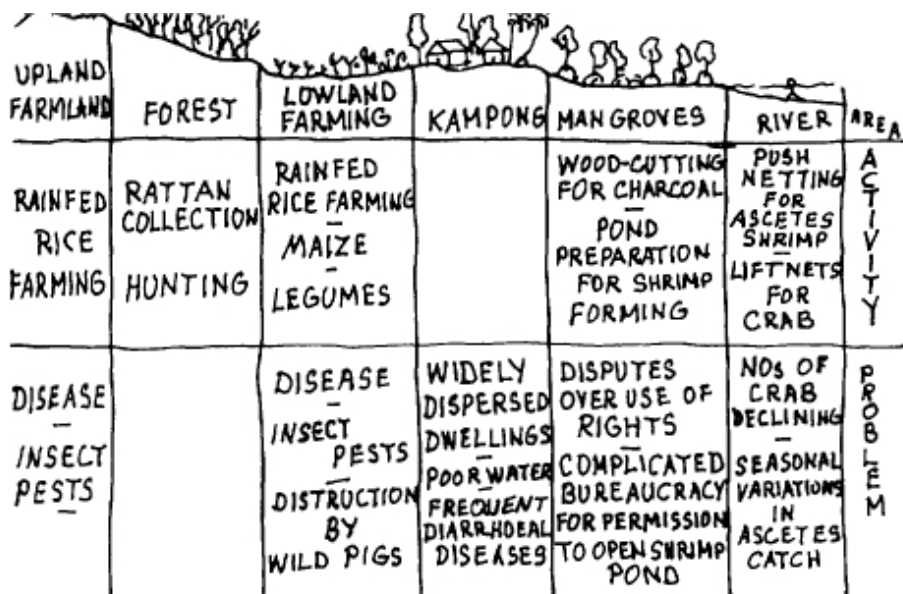 UPLAND
FARMLAND
FOREST
LOWLAND
FARMING
KAMPONG
MANGROVES
RIVER
AREA
RAINFED
RICE
FARMING
RATTAN
COLLECTION
HUNTING
RAINFED
RICE FARMING
—
MAIZE
—
LEGUMES
WOOD-CUTTING
FOR CHARCOAL
—
POND
PREPARATION
FOR SHRIMP
FORMING
PUSH
NETTING
FOR
ASCETES
SHRIMP
—
LIFTNETS
FOR
CRAB
ACTIVITY
DISEASE
—
INSECT
PESTS
—
DISEASE
—
INSECT
PESTS
—
DISTRUCTION
BY
WILD PIGS
WIDELY
DISPERSED
DWELLINGS
—
POOR WATER
—
FREQUENT
DIARRHOEAL
DISEASES
DISPUTES
OVER USE OF
RIGHTS
—
COMPLICATED
BUREAUCRACY
FOR PERMISSION
TO OPEN SHRIMP
POND
NOs OF
CRAB
DECLINING
—
SEASONAL
VARIATIONS
IN
ASCETES
CATCH
PROBLEM